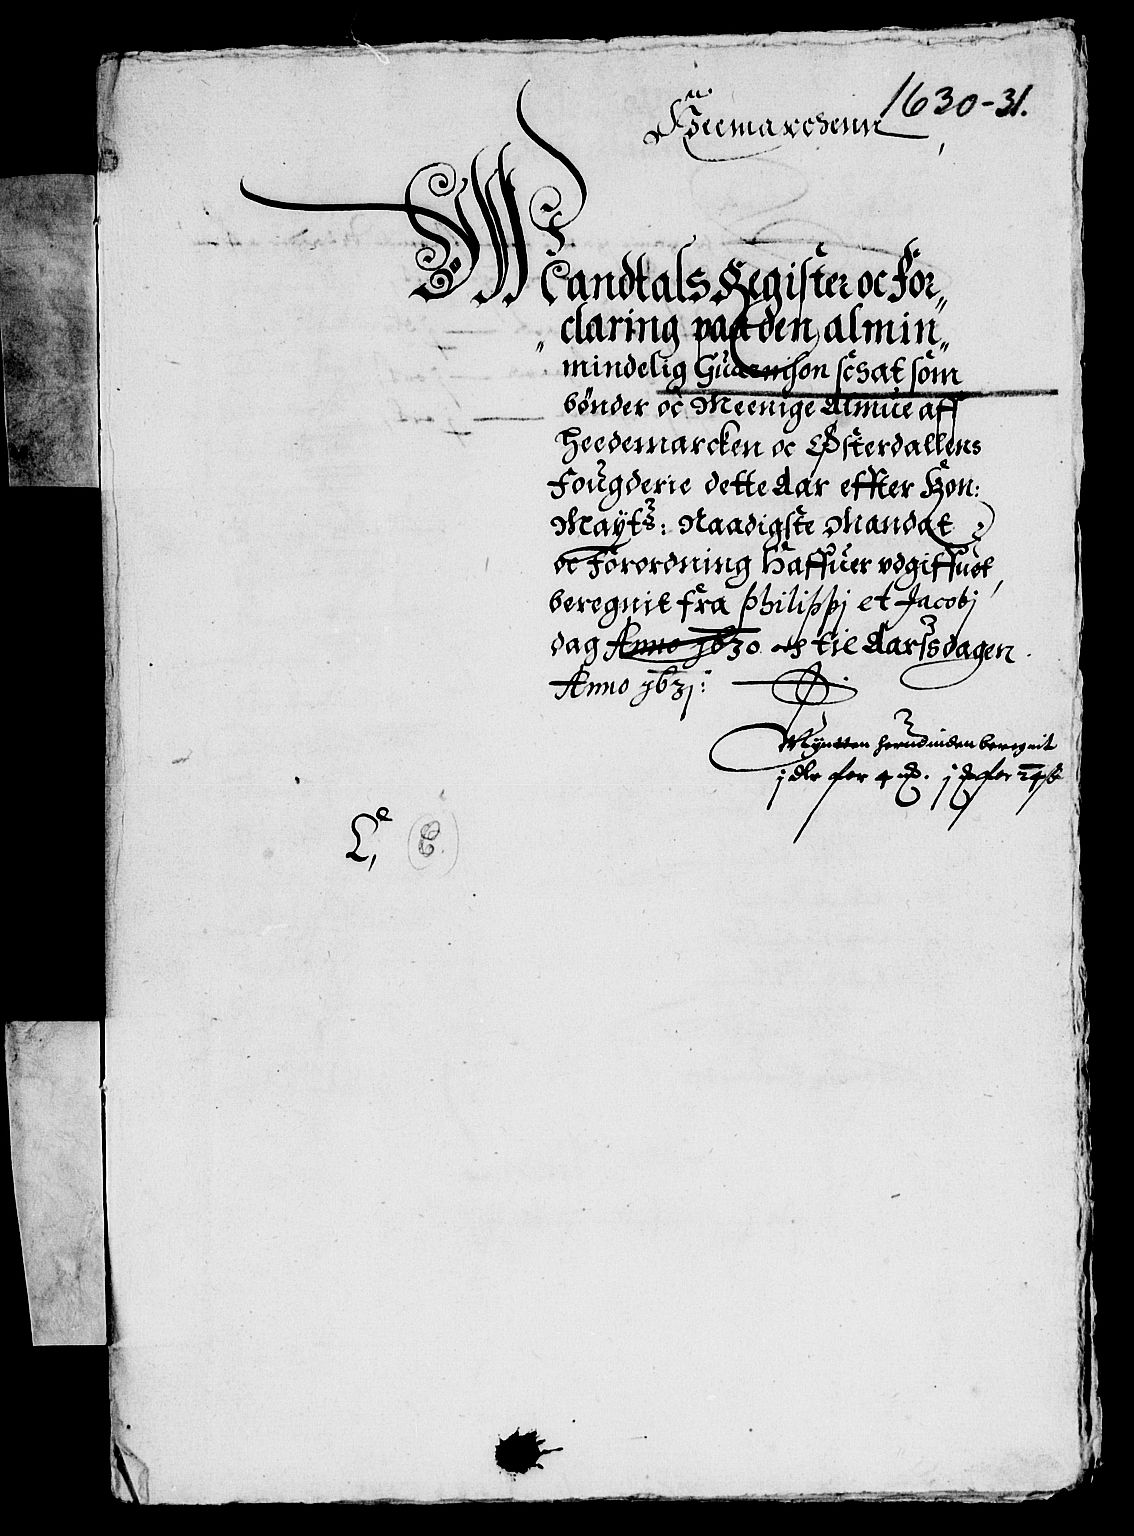 1630-31.
Heemarchenn
Mandtals Register oc For„
„claring paa den almin„
mindelig Guarnison schat som
bönder oc Meenige Almue aff
Heedemarcken oc Østerdallens
Fougderie dette Aar effter Kon:
Maytz: Naadigste Mandat
oc Forordning Haffuer vdgiffuet,
beregnit fra Philippi et Jacobj
dag Anno 1630 och til Aarssdagen
Anno 1631:
Myntten herudinden beregnit
j dlr for 4 j for 24 ß
L,e C.